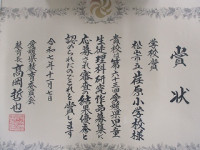 賞状
学校賞
松山市立荏原小学校様
貴校は第六十三回愛媛県児童
生徒理科研究作品募集に
応募され審査の結果優秀と
認められたのでこれを賞します
令和七年十一月七日
愛媛県教育委員会
教育長 高岡哲也